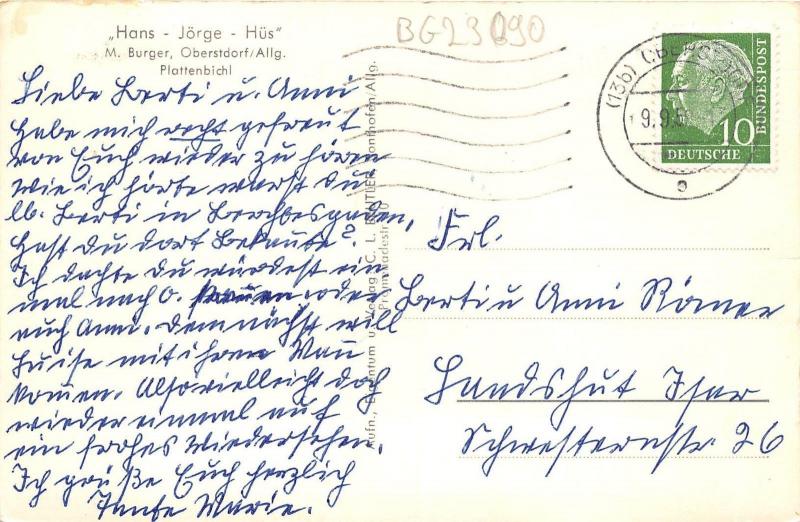 „Hans - Jörge - Hüs"
M. Burger, Oberstdorf/Allg.
Plattenbichl
BG23090
Liebe Berti u. Anni
habe mich recht gefreut
von Euch wieder zu hören
wie ich hörte warst du
lb. Berti in Berchtesgaden,
hast du dort Bekannte?
Ich dachte du würdest ein
mal nach O. kommen oder
auch Anni. Demnächst will
Luise mit ihrem Mann
kommen. Also vielleicht doch
wieder einmal auf
ein frohes Wiedersehen.
Ich grüße Euch herzlich
Tante Marie.
Aufn., Eigentum u. Verlag C. L. Sonthofen/Allg.
Promenadestr.
(13b) OBERSTDORF
9.9.5
10
DEUTSCHE
BUNDESPOST
Frl.
Berti u Anni Römer
Landshut Isar
Schwesternstr. 26